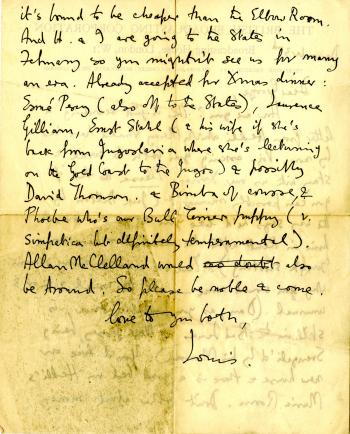 it's bound to be cheaper than the Elbow Room.
And H. & I are going to the States in
February so you mightn't see us for many
an era. Already accepted for Xmas dinner:
Esmé Percy (also off to the States), Laurence
Gilliam, Ernst Stahl (& his wife if she's
back from Jugoslavia where she's lecturing
on the Gold Coast to the Jugos) & possibly
David Thomson. & Bimba of course, &
Phoebe who's our Bull Terrier puppy (v.
simpatica but definitely temperamental).
Allan McClelland would no doubt also
be around. So please be noble & come.
love to you both,
Louis.